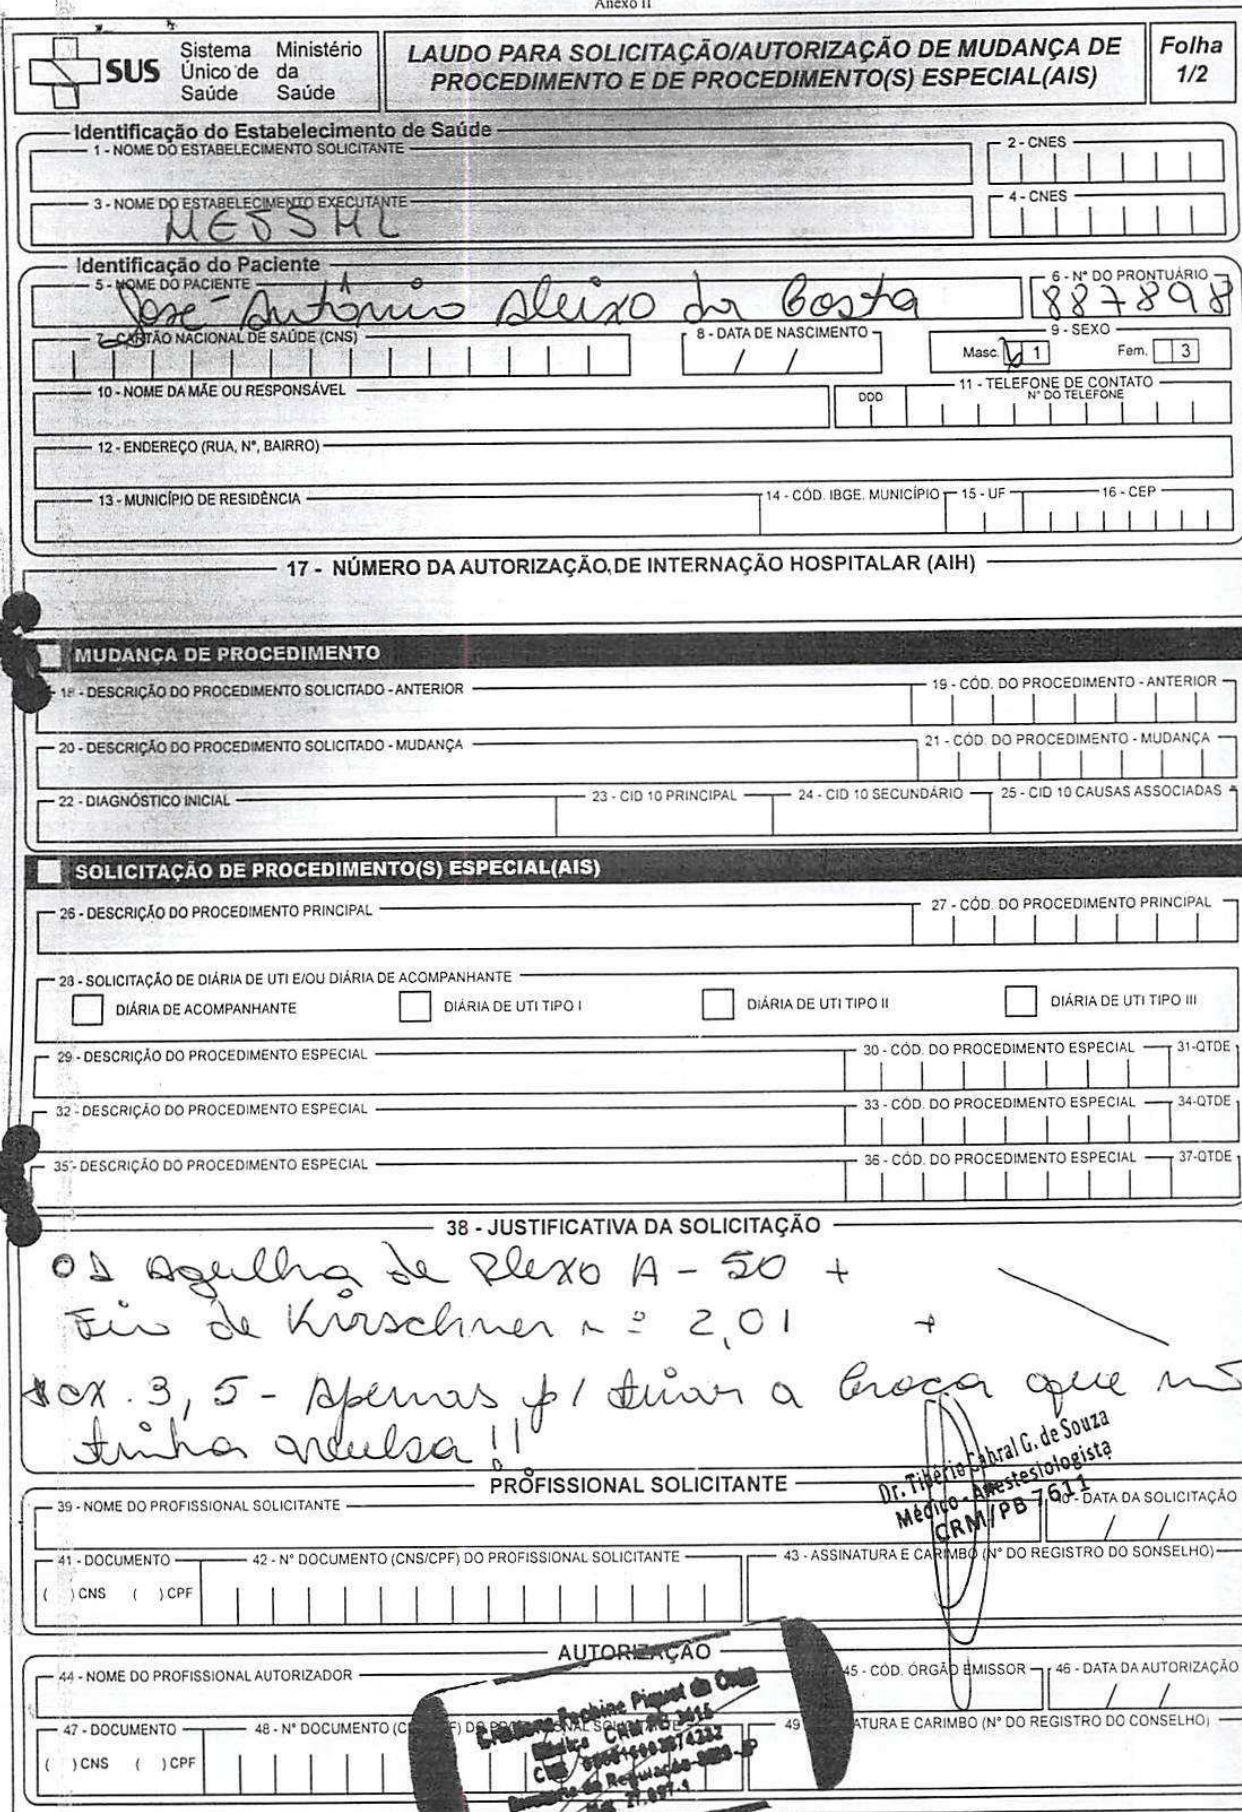 Anexo II
SUS
Sistema Único de Saúde
Ministério da Saúde
LAUDO PARA SOLICITAÇÃO/AUTORIZAÇÃO DE MUDANÇA DE PROCEDIMENTO E DE PROCEDIMENTO(S) ESPECIAL(AIS)
Folha 1/2
Identificação do Estabelecimento de Saúde
1 - NOME DO ESTABELECIMENTO SOLICITANTE
2 - CNES
3 - NOME DO ESTABELECIMENTO EXECUTANTE
4 - CNES
Identificação do Paciente
5 - NOME DO PACIENTE
6 - N° DO PRONTUÁRIO
José Antônio Aleixo da Costa
887898
7 - CARTÃO NACIONAL DE SAÚDE (CNS)
8 - DATA DE NASCIMENTO
/ /
9 - SEXO
Masc. 1
Fem. 3
10 - NOME DA MÃE OU RESPONSÁVEL
DDD
11 - TELEFONE DE CONTATO
N° DO TELEFONE
12 - ENDEREÇO (RUA, N°, BAIRRO)
13 - MUNICÍPIO DE RESIDÊNCIA
14 - CÓD. IBGE. MUNICÍPIO
15 - UF
16 - CEP
17 - NÚMERO DA AUTORIZAÇÃO DE INTERNAÇÃO HOSPITALAR (AIH)
MUDANÇA DE PROCEDIMENTO
18 - DESCRIÇÃO DO PROCEDIMENTO SOLICITADO - ANTERIOR
19 - CÓD. DO PROCEDIMENTO - ANTERIOR
20 - DESCRIÇÃO DO PROCEDIMENTO SOLICITADO - MUDANÇA
21 - CÓD. DO PROCEDIMENTO - MUDANÇA
22 - DIAGNÓSTICO INICIAL
23 - CID 10 PRINCIPAL
24 - CID 10 SECUNDÁRIO
25 - CID 10 CAUSAS ASSOCIADAS
SOLICITAÇÃO DE PROCEDIMENTO(S) ESPECIAL(AIS)
26 - DESCRIÇÃO DO PROCEDIMENTO PRINCIPAL
27 - CÓD. DO PROCEDIMENTO PRINCIPAL
28 - SOLICITAÇÃO DE DIÁRIA DE UTI E/OU DIÁRIA DE ACOMPANHANTE
DIÁRIA DE ACOMPANHANTE
DIÁRIA DE UTI TIPO I
DIÁRIA DE UTI TIPO II
DIÁRIA DE UTI TIPO III
29 - DESCRIÇÃO DO PROCEDIMENTO ESPECIAL
30 - CÓD. DO PROCEDIMENTO ESPECIAL
31-QTDE
32 - DESCRIÇÃO DO PROCEDIMENTO ESPECIAL
33 - CÓD. DO PROCEDIMENTO ESPECIAL
34-QTDE
35 - DESCRIÇÃO DO PROCEDIMENTO ESPECIAL
36 - CÓD. DO PROCEDIMENTO ESPECIAL
37-QTDE
38 - JUSTIFICATIVA DA SOLICITAÇÃO
01 Agulha de Plexo A - 50 +
Fio de Kirschner nº 2,01 +
cx. 3,5 - Apenas p/ tirar a broca que não
tinha avulsa!!
PROFISSIONAL SOLICITANTE
Dr. Tibério Cabral G. de Souza
Médico - Anestesiologista
CRM/PB 7611
39 - NOME DO PROFISSIONAL SOLICITANTE
40 - DATA DA SOLICITAÇÃO
/ /
41 - DOCUMENTO
( ) CNS ( ) CPF
42 - N° DOCUMENTO (CNS/CPF) DO PROFISSIONAL SOLICITANTE
43 - ASSINATURA E CARIMBO (N° DO REGISTRO DO SONSELHO)
AUTORIZAÇÃO
44 - NOME DO PROFISSIONAL AUTORIZADOR
45 - CÓD. ÓRGÃO EMISSOR
46 - DATA DA AUTORIZAÇÃO
/ /
47 - DOCUMENTO
( ) CNS ( ) CPF
48 - N° DOCUMENTO
49
ATURA E CARIMBO (N° DO REGISTRO DO CONSELHO)